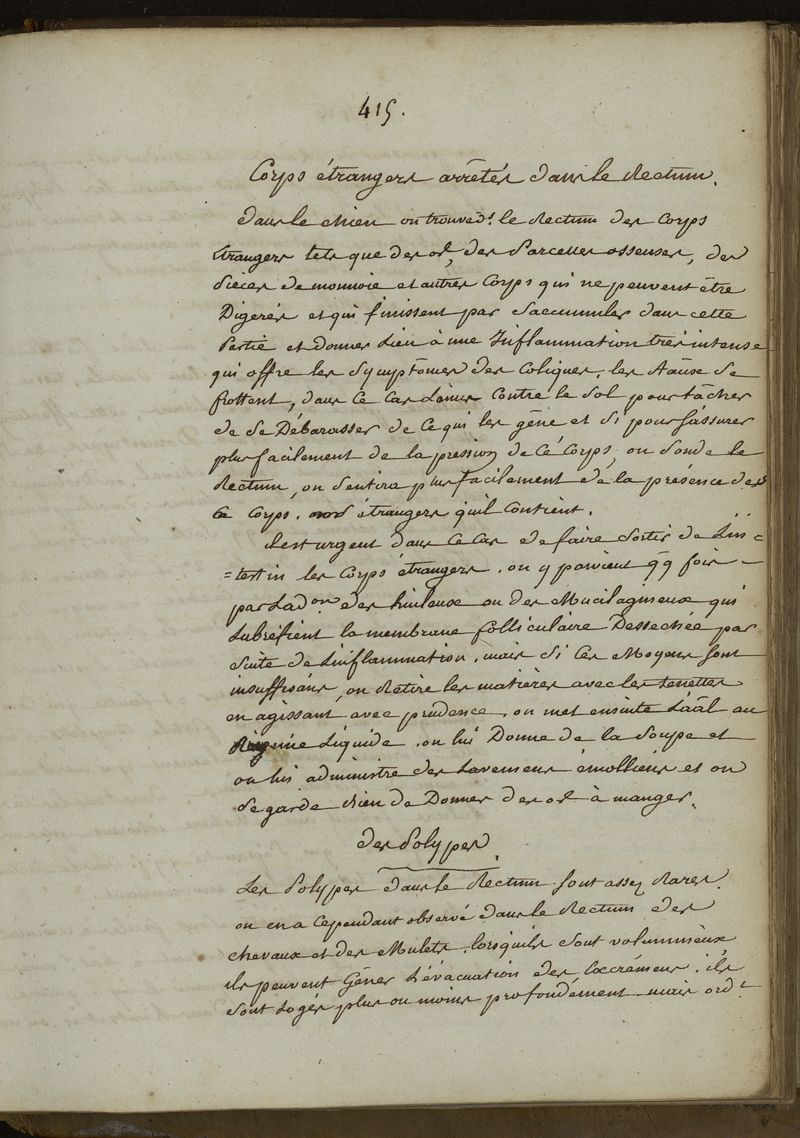 415.
Corps étrangers arrêtés dans le Rectum.
dans le chien on trouve ds. le Rectum des Corps
Etrangers tels que des os, des Parcelles osseuses, des
Pièces de monnoie et autres Corps qui ne peuvent être
Digerés et qui finissent par Saccumuler dans cette
Partie et donner Lieu à une Inflammation très intense
qui offre les Symptômes des Coliques. les Se
frottent, dans ce Cas L'anus Contre le Sol pour tâcher
de se Débarasser de Ce qui les gêne et Si pour S'assurer
plus facilement de la pression de Cé Corps, on Sonde le
Rectum, on plus facilement de la présence des
Ce Corps. étrangers qu'il Contient.
il est urgent dans ce Cas de faire Sortir de Lin=
=testin les Corps étrangers. on y parvient qq fois
par Ladon des huileux ou des Mucilagineux qui
Lubréfient la membrane folliculaire Dessechée par
Suite de L'inflammation. mais Si Ces Moyens Sont
insuffisans, on Retire les matières avec les tenettes
en agissant avec prudence. on met ensuite Laâl au
Régime Liquide. on lui Donne de la Soupe et
on lui administre des Lavemens émolliens et on
Se garde bien de Donner des os à manger.
des Polypes
Les Polypes dans le Rectum Sont assez Rares.
on en a Cependant observé dans le Rectum des
chevaux et des Mulets. lorsqu'ils Sont volumineux
ils peuvent Gêner L'évacuation des Excrémens. ils
Sont Logés plus ou moins profondément mais ordt